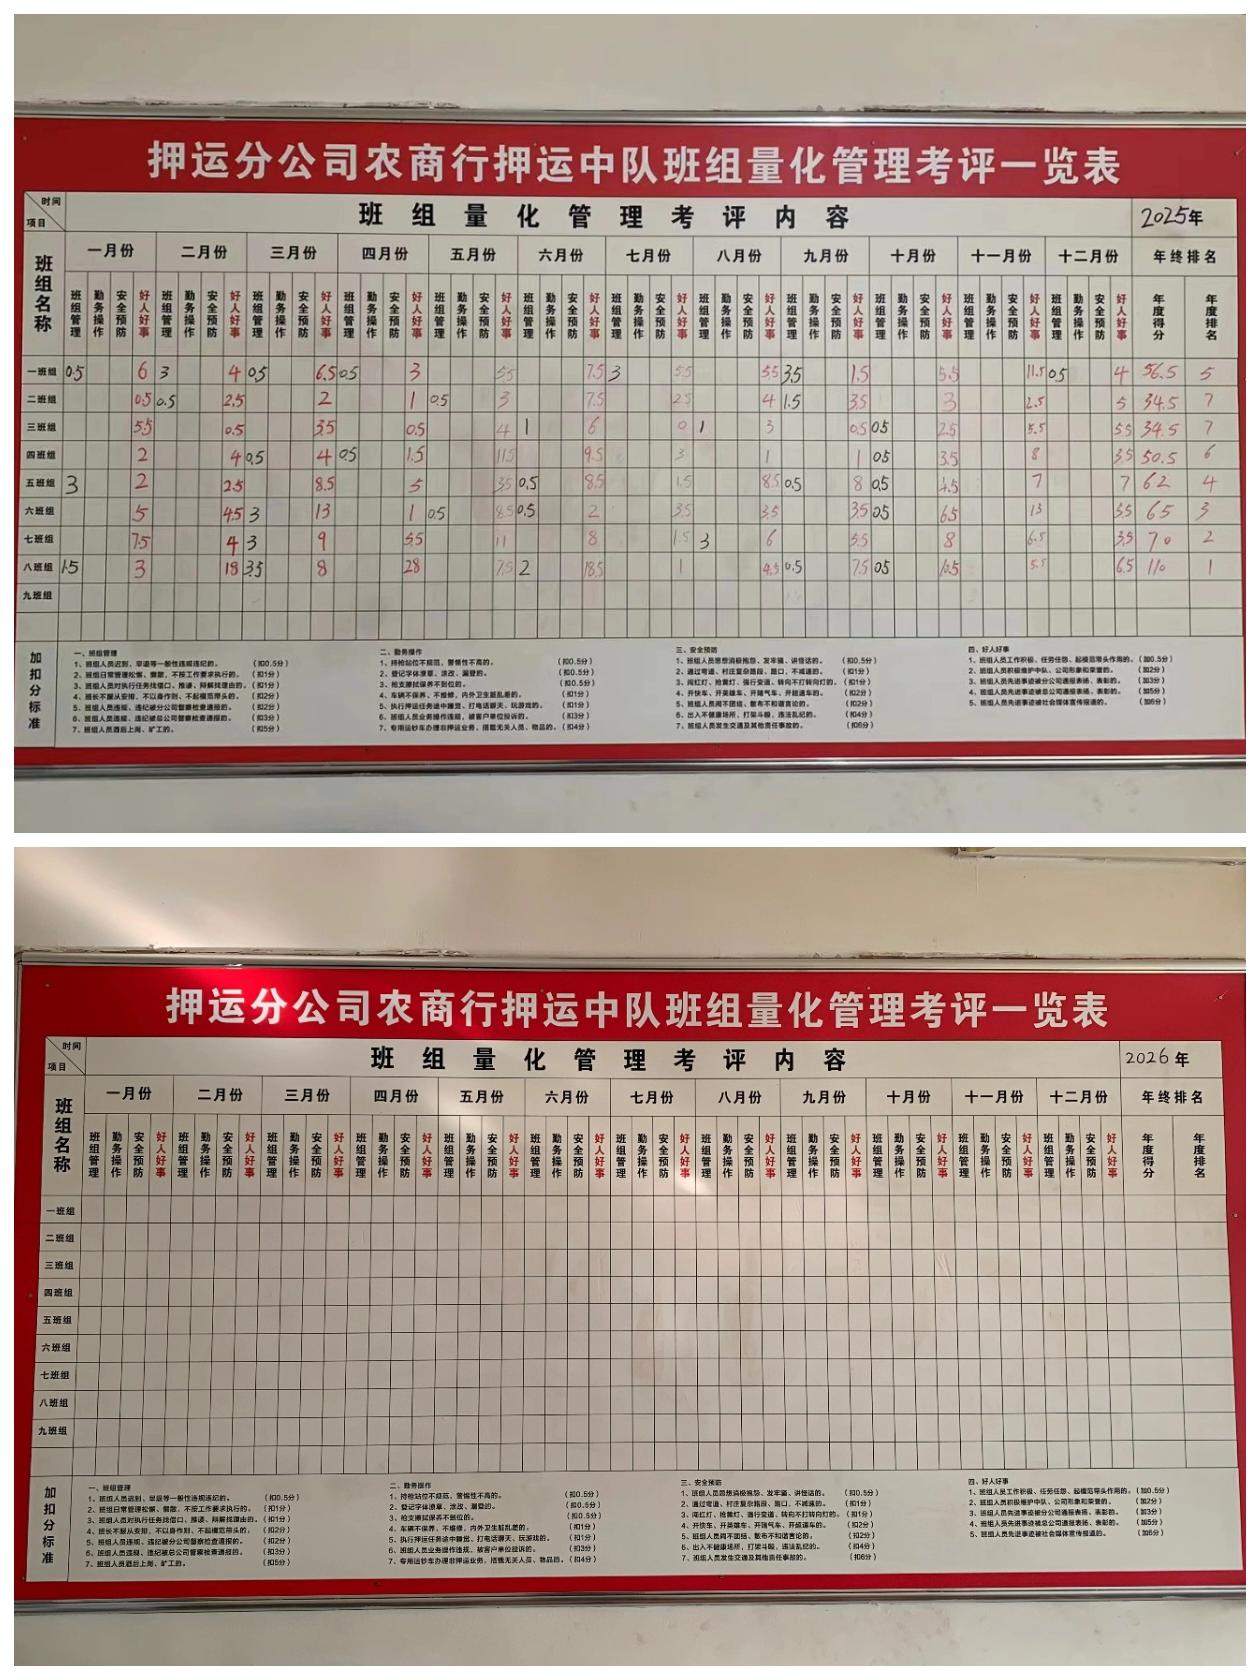 押运分公司农商行押运中队班组量化管理考评一览表
时间
项目
班组量化管理考评内容
2025年
班组名称
一月份 二月份 三月份 四月份 五月份 六月份 七月份 八月份 九月份 十月份 十一月份 十二月份 年终排名
班组管理 勤务操作 安全预防 好人好事 班组管理 勤务操作 安全预防 好人好事 班组管理 勤务操作 安全预防 好人好事 班组管理 勤务操作 安全预防 好人好事 班组管理 勤务操作 安全预防 好人好事 班组管理 勤务操作 安全预防 好人好事 班组管理 勤务操作 安全预防 好人好事 班组管理 勤务操作 安全预防 好人好事 班组管理 勤务操作 安全预防 好人好事 班组管理 勤务操作 安全预防 好人好事 班组管理 勤务操作 安全预防 好人好事 班组管理 勤务操作 安全预防 好人好事 年度得分 年度排名
一班组 0.5 6 3 4 0.5 6.5 0.5 3 5.5 7.5 3 5.5 5.5 3.5 1.5 5.5 11.5 0.5 4 56.5 5
二班组 0.5 0.5 2.5 2 1 0.5 3 7.5 2.5 4 1.5 3.5 3 2.5 5 34.5 7
三班组 5.5 0.5 3.5 0.5 4 1 6 0 1 3 0.5 0.5 2.5 5.5 5.5 34.5 7
四班组 2 4 0.5 4 0.5 1.5 11.5 9.5 3 1 1 0.5 3.5 8 3.5 50.5 6
五班组 3 2 2.5 8.5 5 3.5 0.5 8.5 1.5 8.5 0.5 8 0.5 4.5 7 7 62 4
六班组 5 4.5 3 13 1 0.5 8.5 0.5 2 3.5 3.5 3.5 0.5 6.5 13 5.5 65 3
七班组 7.5 4 3 9 5.5 11 8 1.5 3 6 5.5 8 6.5 3.5 70 2
八班组 1.5 3 18 3.5 8 28 7.5 2 18.5 1 4.5 0.5 7.5 0.5 10.5 5.5 6.5 110 1
九班组
加扣分标准
一、班组管理
1、班组人员迟到、早退等一般性违规违纪的。（扣0.5分）
2、班组日常管理松懈、懒散，不按工作要求执行的。（扣1分）
3、班组人员对执行任务找借口、推诿、辩解找理由的。（扣1分）
4、班长不服从安排、不以身作则、不起模范带头的。（扣2分）
5、班组人员违规、违纪被分公司督察检查通报的。（扣2分）
6、班组人员违规、违纪被总公司督察检查通报的。（扣3分）
7、班组人员酒后上岗、旷工的。（扣5分）
二、勤务操作
1、持枪站位不规范，警惕性不高的。（扣0.5分）
2、登记字体潦草，涂改、漏登的。（扣0.5分）
3、枪支擦拭保养不到位的。（扣0.5分）
4、车辆不保养、不维修，内外卫生脏乱差的。（扣1分）
5、执行押运任务途中睡觉、打电话聊天、玩游戏的。（扣1分）
6、班组人员业务操作违规，被客户单位投诉的。（扣3分）
7、专用运钞车办理非押运业务，搭载无关人员、物品的。（扣4分）
三、安全预防
1、班组人员思想消极抱怨、发牢骚、讲怪话的。（扣0.5分）
2、通过弯道、村庄复杂路段、路口，不减速的。（扣1分）
3、闯红灯、抢黄灯、强行变道、转向不打转向灯的。（扣1分）
4、开快车、开英雄车、开赌气车、开超速车的。（扣2分）
5、班组人员闹不团结、散布不和谐言论的。（扣2分）
6、出入不健康场所，打架斗殴，违法乱纪的。（扣4分）
7、班组人员发生交通及其他责任事故的。（扣6分）
四、好人好事
1、班组人员工作积极、任劳任怨、起模范带头作用的。（加0.5分）
2、班组人员积极维护中队、公司形象和荣誉的。（加2分）
3、班组人员先进事迹被分公司通报表扬、表彰的。（加3分）
4、班组人员先进事迹被总公司通报表扬、表彰的。（加5分）
5、班组人员先进事迹被社会媒体宣传报道的。（加6分）
押运分公司农商行押运中队班组量化管理考评一览表
时间
项目
班组量化管理考评内容
2026年
班组名称
一月份 二月份 三月份 四月份 五月份 六月份 七月份 八月份 九月份 十月份 十一月份 十二月份 年终排名
班组管理 勤务操作 安全预防 好人好事 班组管理 勤务操作 安全预防 好人好事 班组管理 勤务操作 安全预防 好人好事 班组管理 勤务操作 安全预防 好人好事 班组管理 勤务操作 安全预防 好人好事 班组管理 勤务操作 安全预防 好人好事 班组管理 勤务操作 安全预防 好人好事 班组管理 勤务操作 安全预防 好人好事 班组管理 勤务操作 安全预防 好人好事 班组管理 勤务操作 安全预防 好人好事 班组管理 勤务操作 安全预防 好人好事 班组管理 勤务操作 安全预防 好人好事 年度得分 年度排名
一班组
二班组
三班组
四班组
五班组
六班组
七班组
八班组
九班组
加扣分标准
一、班组管理
1、班组人员迟到、早退等一般性违规违纪的。（扣0.5分）
2、班组日常管理松懈、懒散，不按工作要求执行的。（扣1分）
3、班组人员对执行任务找借口、推诿、辩解找理由的。（扣1分）
4、班长不服从安排、不以身作则、不起模范带头的。（扣2分）
5、班组人员违规、违纪被分公司督察检查通报的。（扣2分）
6、班组人员违规、违纪被总公司督察检查通报的。（扣3分）
7、班组人员酒后上岗、旷工的。（扣5分）
二、勤务操作
1、持枪站位不规范，警惕性不高的。（扣0.5分）
2、登记字体潦草，涂改、漏登的。（扣0.5分）
3、枪支擦拭保养不到位的。（扣0.5分）
4、车辆不保养、不维修，内外卫生脏乱差的。（扣1分）
5、执行押运任务途中睡觉、打电话聊天、玩游戏的。（扣1分）
6、班组人员业务操作违规，被客户单位投诉的。（扣3分）
7、专用运钞车办理非押运业务，搭载无关人员、物品的。（扣4分）
三、安全预防
1、班组人员思想消极抱怨、发牢骚、讲怪话的。（扣0.5分）
2、通过弯道、村庄复杂路段、路口，不减速的。（扣1分）
3、闯红灯、抢黄灯、强行变道、转向不打转向灯的。（扣1分）
4、开快车、开英雄车、开赌气车、开超速车的。（扣2分）
5、班组人员闹不团结、散布不和谐言论的。（扣2分）
6、出入不健康场所，打架斗殴，违法乱纪的。（扣4分）
7、班组人员发生交通及其他责任事故的。（扣6分）
四、好人好事
1、班组人员工作积极、任劳任怨、起模范带头作用的。（加0.5分）
2、班组人员积极维护中队、公司形象和荣誉的。（加2分）
3、班组人员先进事迹被分公司通报表扬、表彰的。（加3分）
4、班组人员先进事迹被总公司通报表扬、表彰的。（加5分）
5、班组人员先进事迹被社会媒体宣传报道的。（加6分）